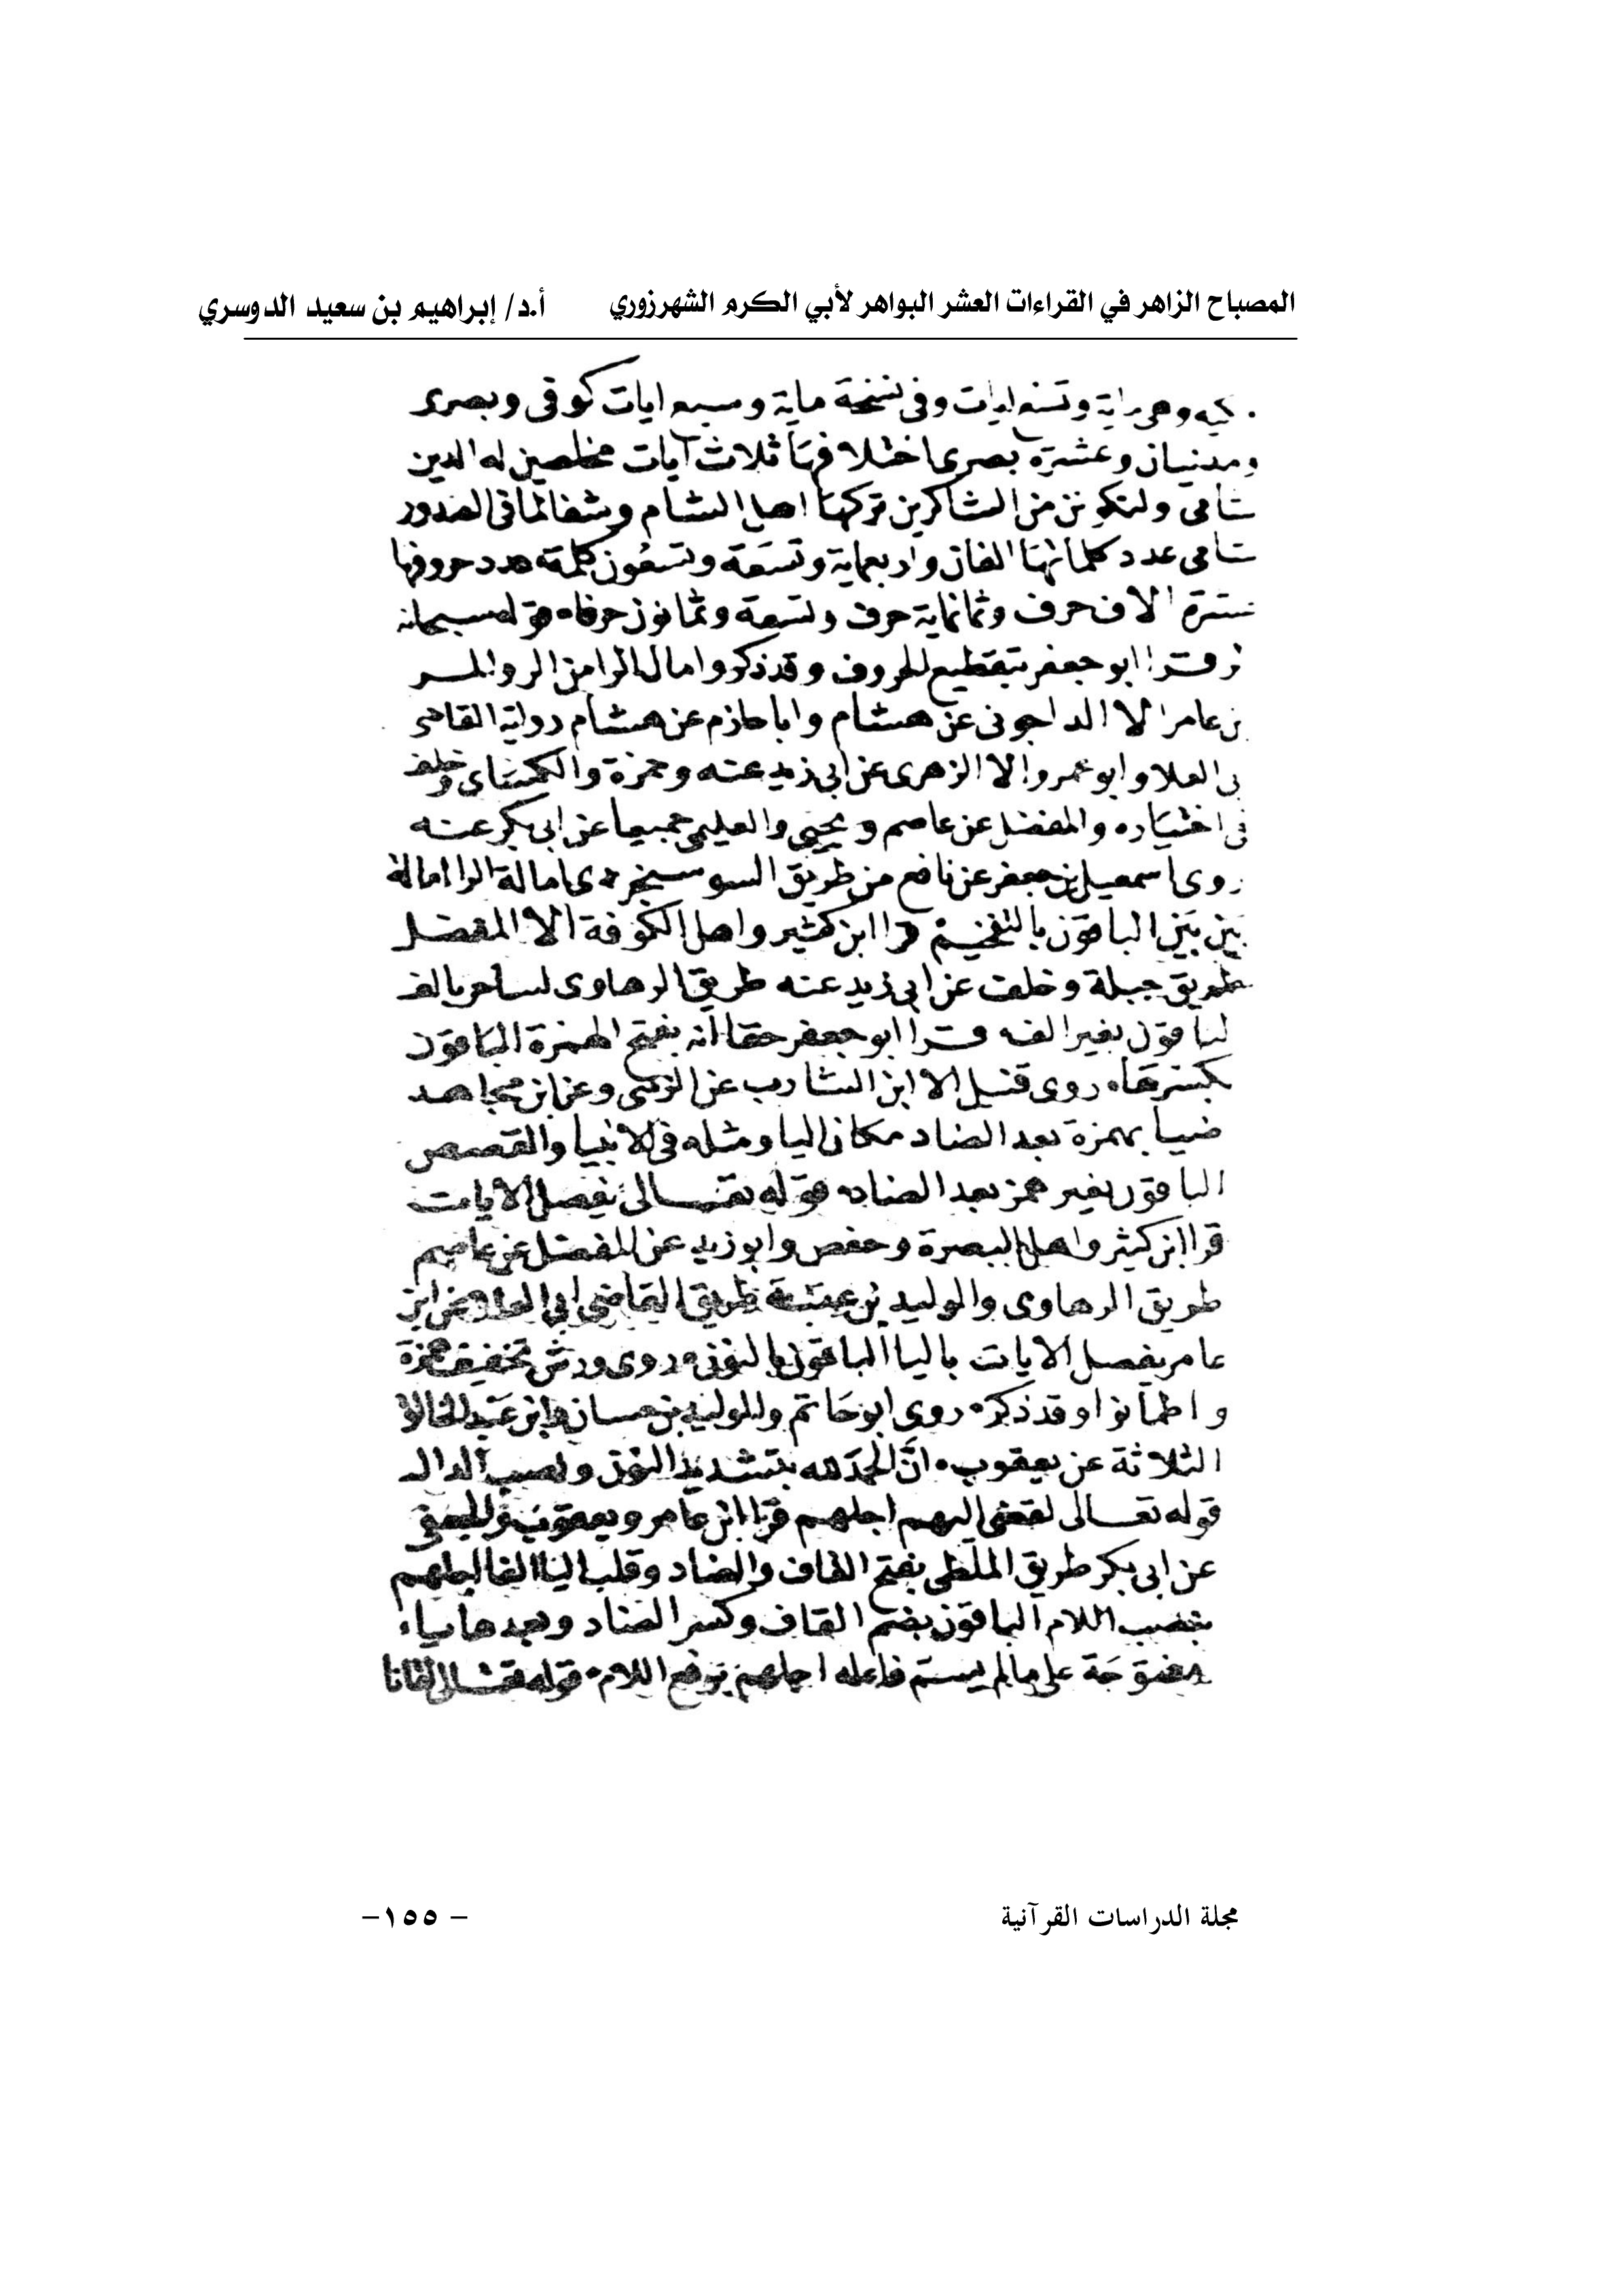 المصباح الزاهر في القراءات العشر البواهر لأبي الكرم الشهرزوري أ.د/ إبراهيم بن سعيد الدوسري
وتسع ايات وفى نسخة ماية وسبع ايات كوفى وبصرى
ومدنيان وعشرة بصرى اختلافها ثلاث آيات مخلصين له الدين
شامى ولنكونن من الشاكرين تركها اهل الشام وشفا لما فى الصدور
شامى عدد كلماتها الفان واربعماية وتسعة وتسعون كلمة عدد حروفها
ستة الاف حرف وثمانماية حرف وتسعة وثمانون حرفا قوله سبحانه
قرا ابو جعفر بتقطيع الحروف وقد ذكر وامال الرا من الر والمر
بن عامر الا الداجونى عن هشام وابا حازم عن هشام رواية القاضى
بى العلا وابو عمرو الا الزهرى عن ابى زيد عنه وحمزة والكسائى وخلف
فى اختياره والمفضل عن عاصم ويحيى والعليمى جميعا عن ابى بكر عنه
روى اسمعيل بن جعفر عن نافع من طريق السوسنجردى امالة الرا امالة
بين بين الباقون بالتفخيم قرا ابن كثير واهل الكوفة الا المفضل
طريق جبلة وخلف عن ابى زيد عنه طريق الرهاوى لساحر بالف
الباقون بغير الف قرا ابو جعفر حقا انه بفتح الهمزة الباقون
بكسرها روى قنبل الا ابن الشارب عن الزينبى وعن ابن مجاهد
ضيا بهمزة بعد الضاد مكان اليا ومثله فى الانبيا والقصص
الباقون بغير همز بعد الضاد قوله تعالى نفصل الايات
قرا ابن كثير واهل البصرة وحفص وابو زيد عن المفضل عن عاصم
طريق الرهاوى والوليد بن عتبة طريق القاضى ابى العلا عن ابن
عامر يفصل الايات باليا الباقون بالنون روى ورش تخفيف همزة
واطمانوا وقد ذكر روى ابو حاتم والوليد بن حسان وابن عبد الخالق
الثلاثة عن يعقوب انّ الحمدَ لله بتشديد النون ونصب الدال
قوله تعالى لقضى اليهم اجلهم قرا ابن عامر ويعقوب
عن ابى بكر طريق الملطى بفتح القاف والضاد وقلب اليا الفا اجلهم
بنصب اللام الباقون بضم القاف وكسر الضاد وبعدها ياء
مفتوحة على ما لم يسم فاعله اجلهم برفع اللام قوله
مجلة الدراسات القرآنية – ١٥٥–